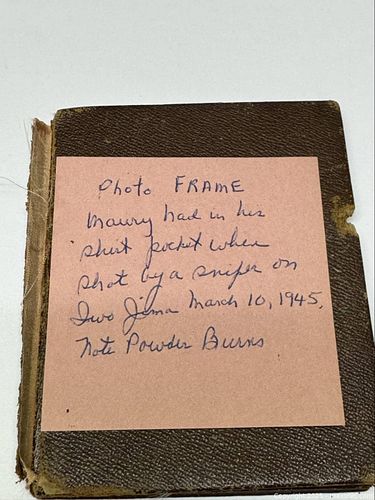 Photo FRAME
Maury had in his
shirt pocket when
shot by a sniper on
Iwo Jima March 10, 1945.
Note Powder Burns